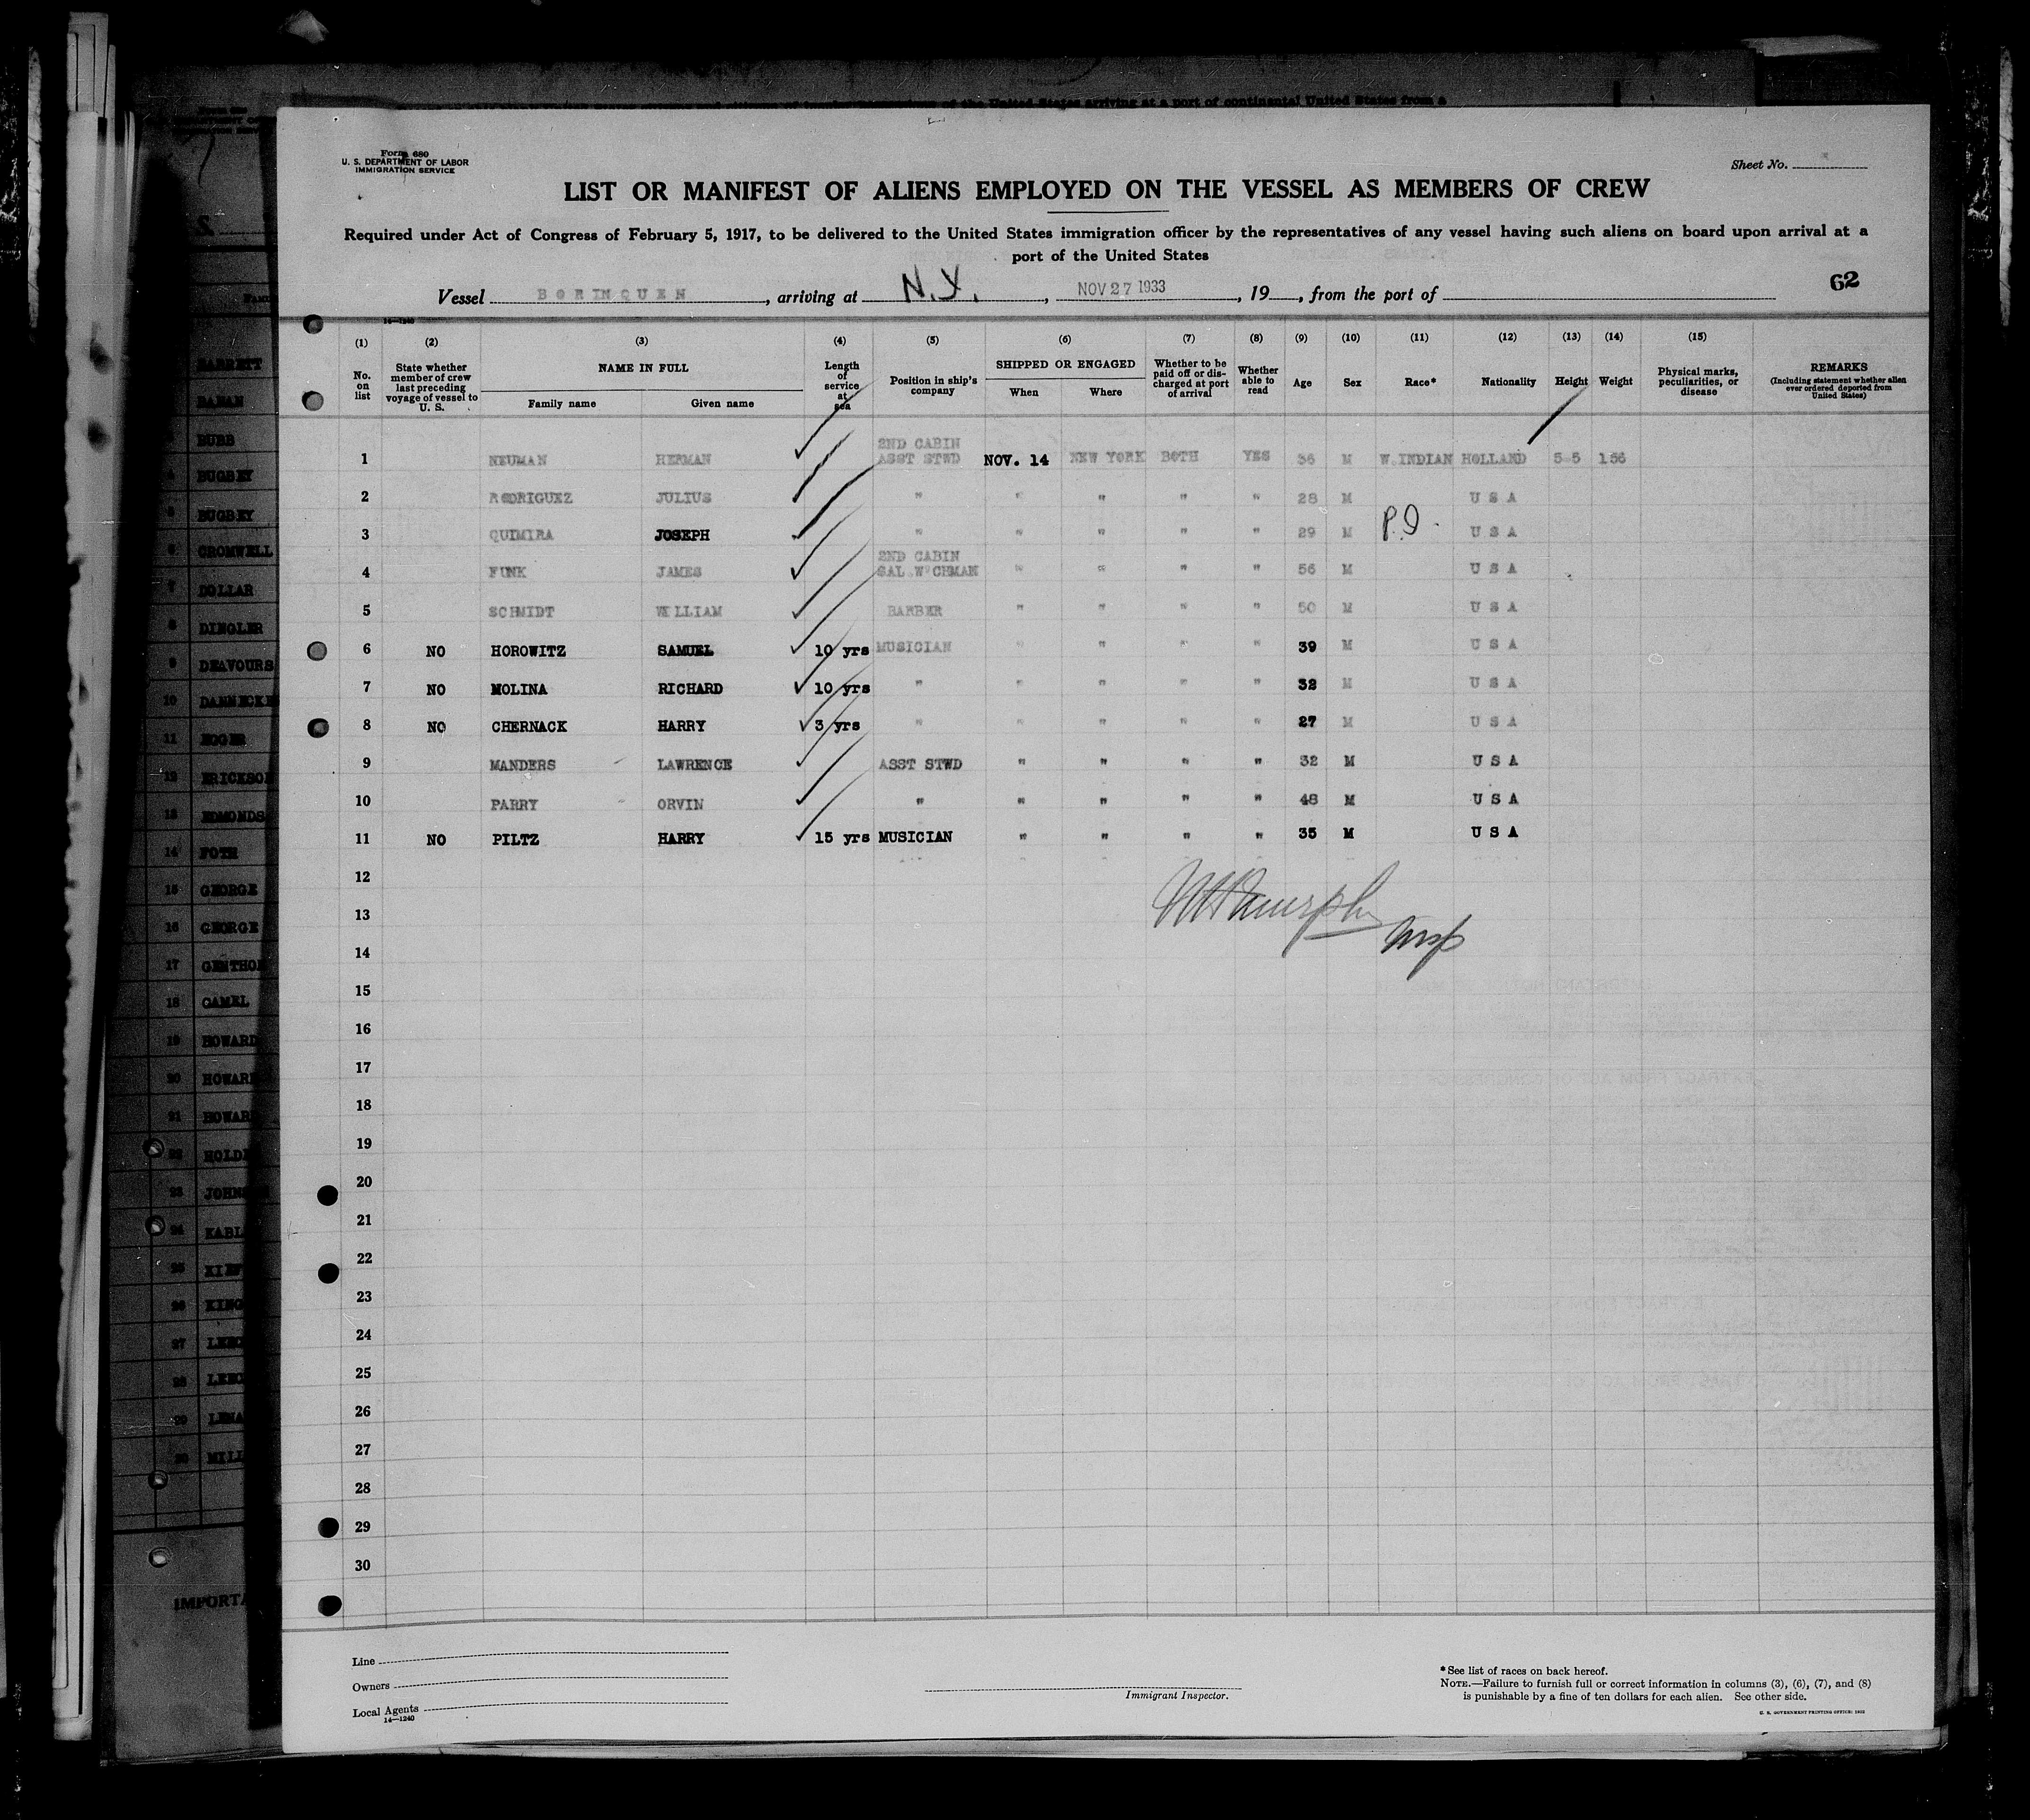 Form 680
U. S. DEPARTMENT OF LABOR
IMMIGRATION SERVICE
Sheet No.
LIST OR MANIFEST OF ALIENS EMPLOYED ON THE VESSEL AS MEMBERS OF CREW
Required under Act of Congress of February 5, 1917, to be delivered to the United States immigration officer by the representatives of any vessel having such aliens on board upon arrival at a
port of the United States
62
Vessel BORINQUEN, arriving at N.Y., NOV 27 1933, 19, from the port of
14—1240
(1) (2) (3) (4) (5) (6) (7) (8) (9) (10) (11) (12) (13) (14) (15)
No. on list
State whether member of crew last preceding voyage of vessel to U. S.
NAME IN FULL
Family name Given name
Length of service at sea
Position in ship's company
SHIPPED OR ENGAGED
When Where
Whether to be paid off or discharged at port of arrival
Whether able to read
Age Sex Race* Nationality Height Weight
Physical marks, peculiarities, or disease
REMARKS
(Including statement whether alien ever ordered deported from United States)
1 NEUMAN HERMAN 2ND CABIN ASST STWD NOV. 14 NEW YORK BOTH YES 36 M W.INDIAN HOLLAND 5 5 156
2 RODRIGUEZ JULIUS " " " " " 28 M U S A
3 QUIMIRA JOSEPH " " " " " 29 M P.I. U S A
4 FUNK JAMES 2ND CABIN SAL.W'CHMAN " " " " 56 M U S A
5 SCHMIDT WILLIAM BARBER " " " " 50 M U S A
6 NO HOROWITZ SAMUEL 10 yrs MUSICIAN " " " " 39 M U S A
7 NO MOLINA RICHARD 10 yrs " " " " " 32 M U S A
8 NO CHERNACK HARRY 3 yrs " " " " " 27 M U S A
9 MANDERS LAWRENCE ASST STWD " " " " 32 M U S A
10 PARRY ORVIN " " " " " 48 M U S A
11 NO PILTZ HARRY 15 yrs MUSICIAN " " " " 35 M U S A
12
13
14
15
16
17
18
19
20
21
22
23
24
25
26
27
28
29
30
Line
Owners
Local Agents
14—1240
Immigrant Inspector.
*See list of races on back hereof.
NOTE.—Failure to furnish full or correct information in columns (3), (6), (7), and (8)
is punishable by a fine of ten dollars for each alien. See other side.
U. S. GOVERNMENT PRINTING OFFICE: 1932
BARRETT
BUBB
4 BUGBEY
BUGBEY
6 CROMWELL
7 DOLLAR
8 DINGLER
9 DEAVOURS
10
11 EGGER
12 ERICKSON
13 EDMONDS
14 FOTH
15 GEORGE
16 GEORGE
17
18 GAMEL
19 HOWARD
20 HOWAR
21 HOWAR
22 HOLD
23 JOHN
24
25
26 KING
27
28
29
30 MILL
IMPORTA